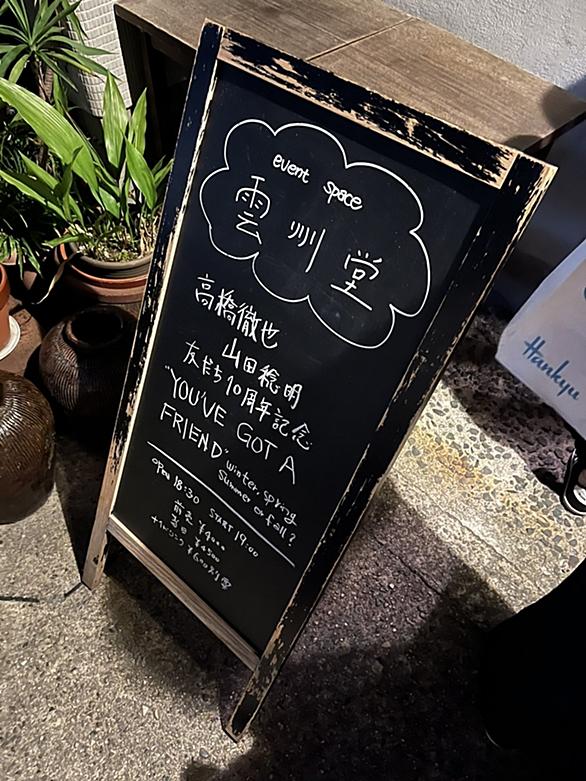 event space
雲州堂
高橋徹也
山田稔明
友だち10周年記念
"YOU'VE GOT A
FRIEND" winter, spring
Summer or fall?
open 18:30 START 19:00
前売 ¥4000
当日 ¥4500
+1ドリンク ¥600別途
Hankyu